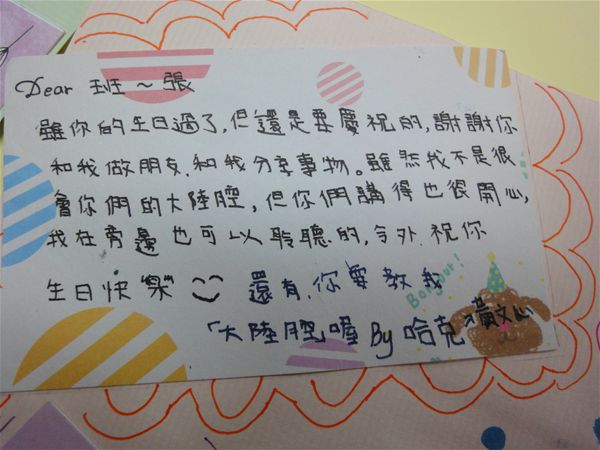 Dear 班~張
雖你的生日過了,但還是要慶祝的,謝謝你
和我做朋友.和我分享事物。雖然我不是很
會你們的大陸腔,但你們講得也很開心,
我在旁邊也可以聆聽的,令外.祝你
生日快樂 還有.你要教我
「大陸腔」喔 By 哈克 黃文心
Bonjour!